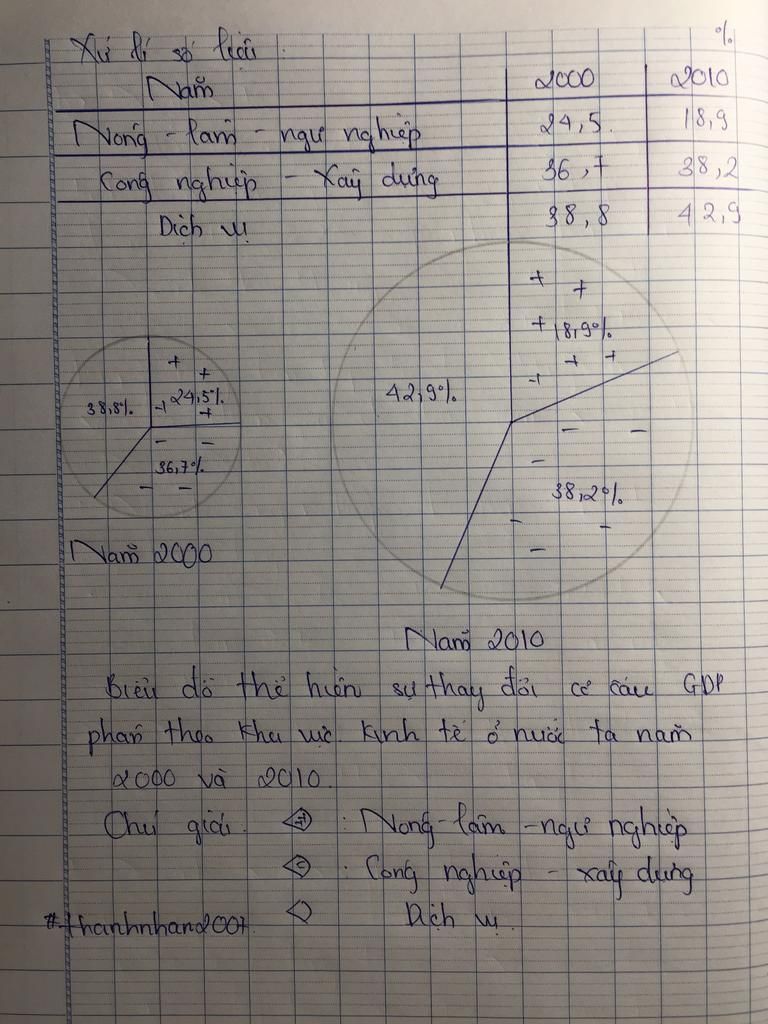 Xử lí số liệu: %
Năm 2000 2010
Nông - lâm - ngư nghiệp 24,5 18,9
Công nghiệp - Xây dựng 36,7 38,2
Dịch vụ 38,8 42,9
18,9%
42,9%
38,8% 24,5%
36,7%
38,2%
Năm 2000
Năm 2010
Biểu đồ thể hiện sự thay đổi cơ cấu GDP
phân theo khu vực kinh tế ở nước ta năm
2000 và 2010.
Chú giải : Nông - lâm - ngư nghiệp
: Công nghiệp - xây dựng
#thanhnhan2007 Dịch vụ